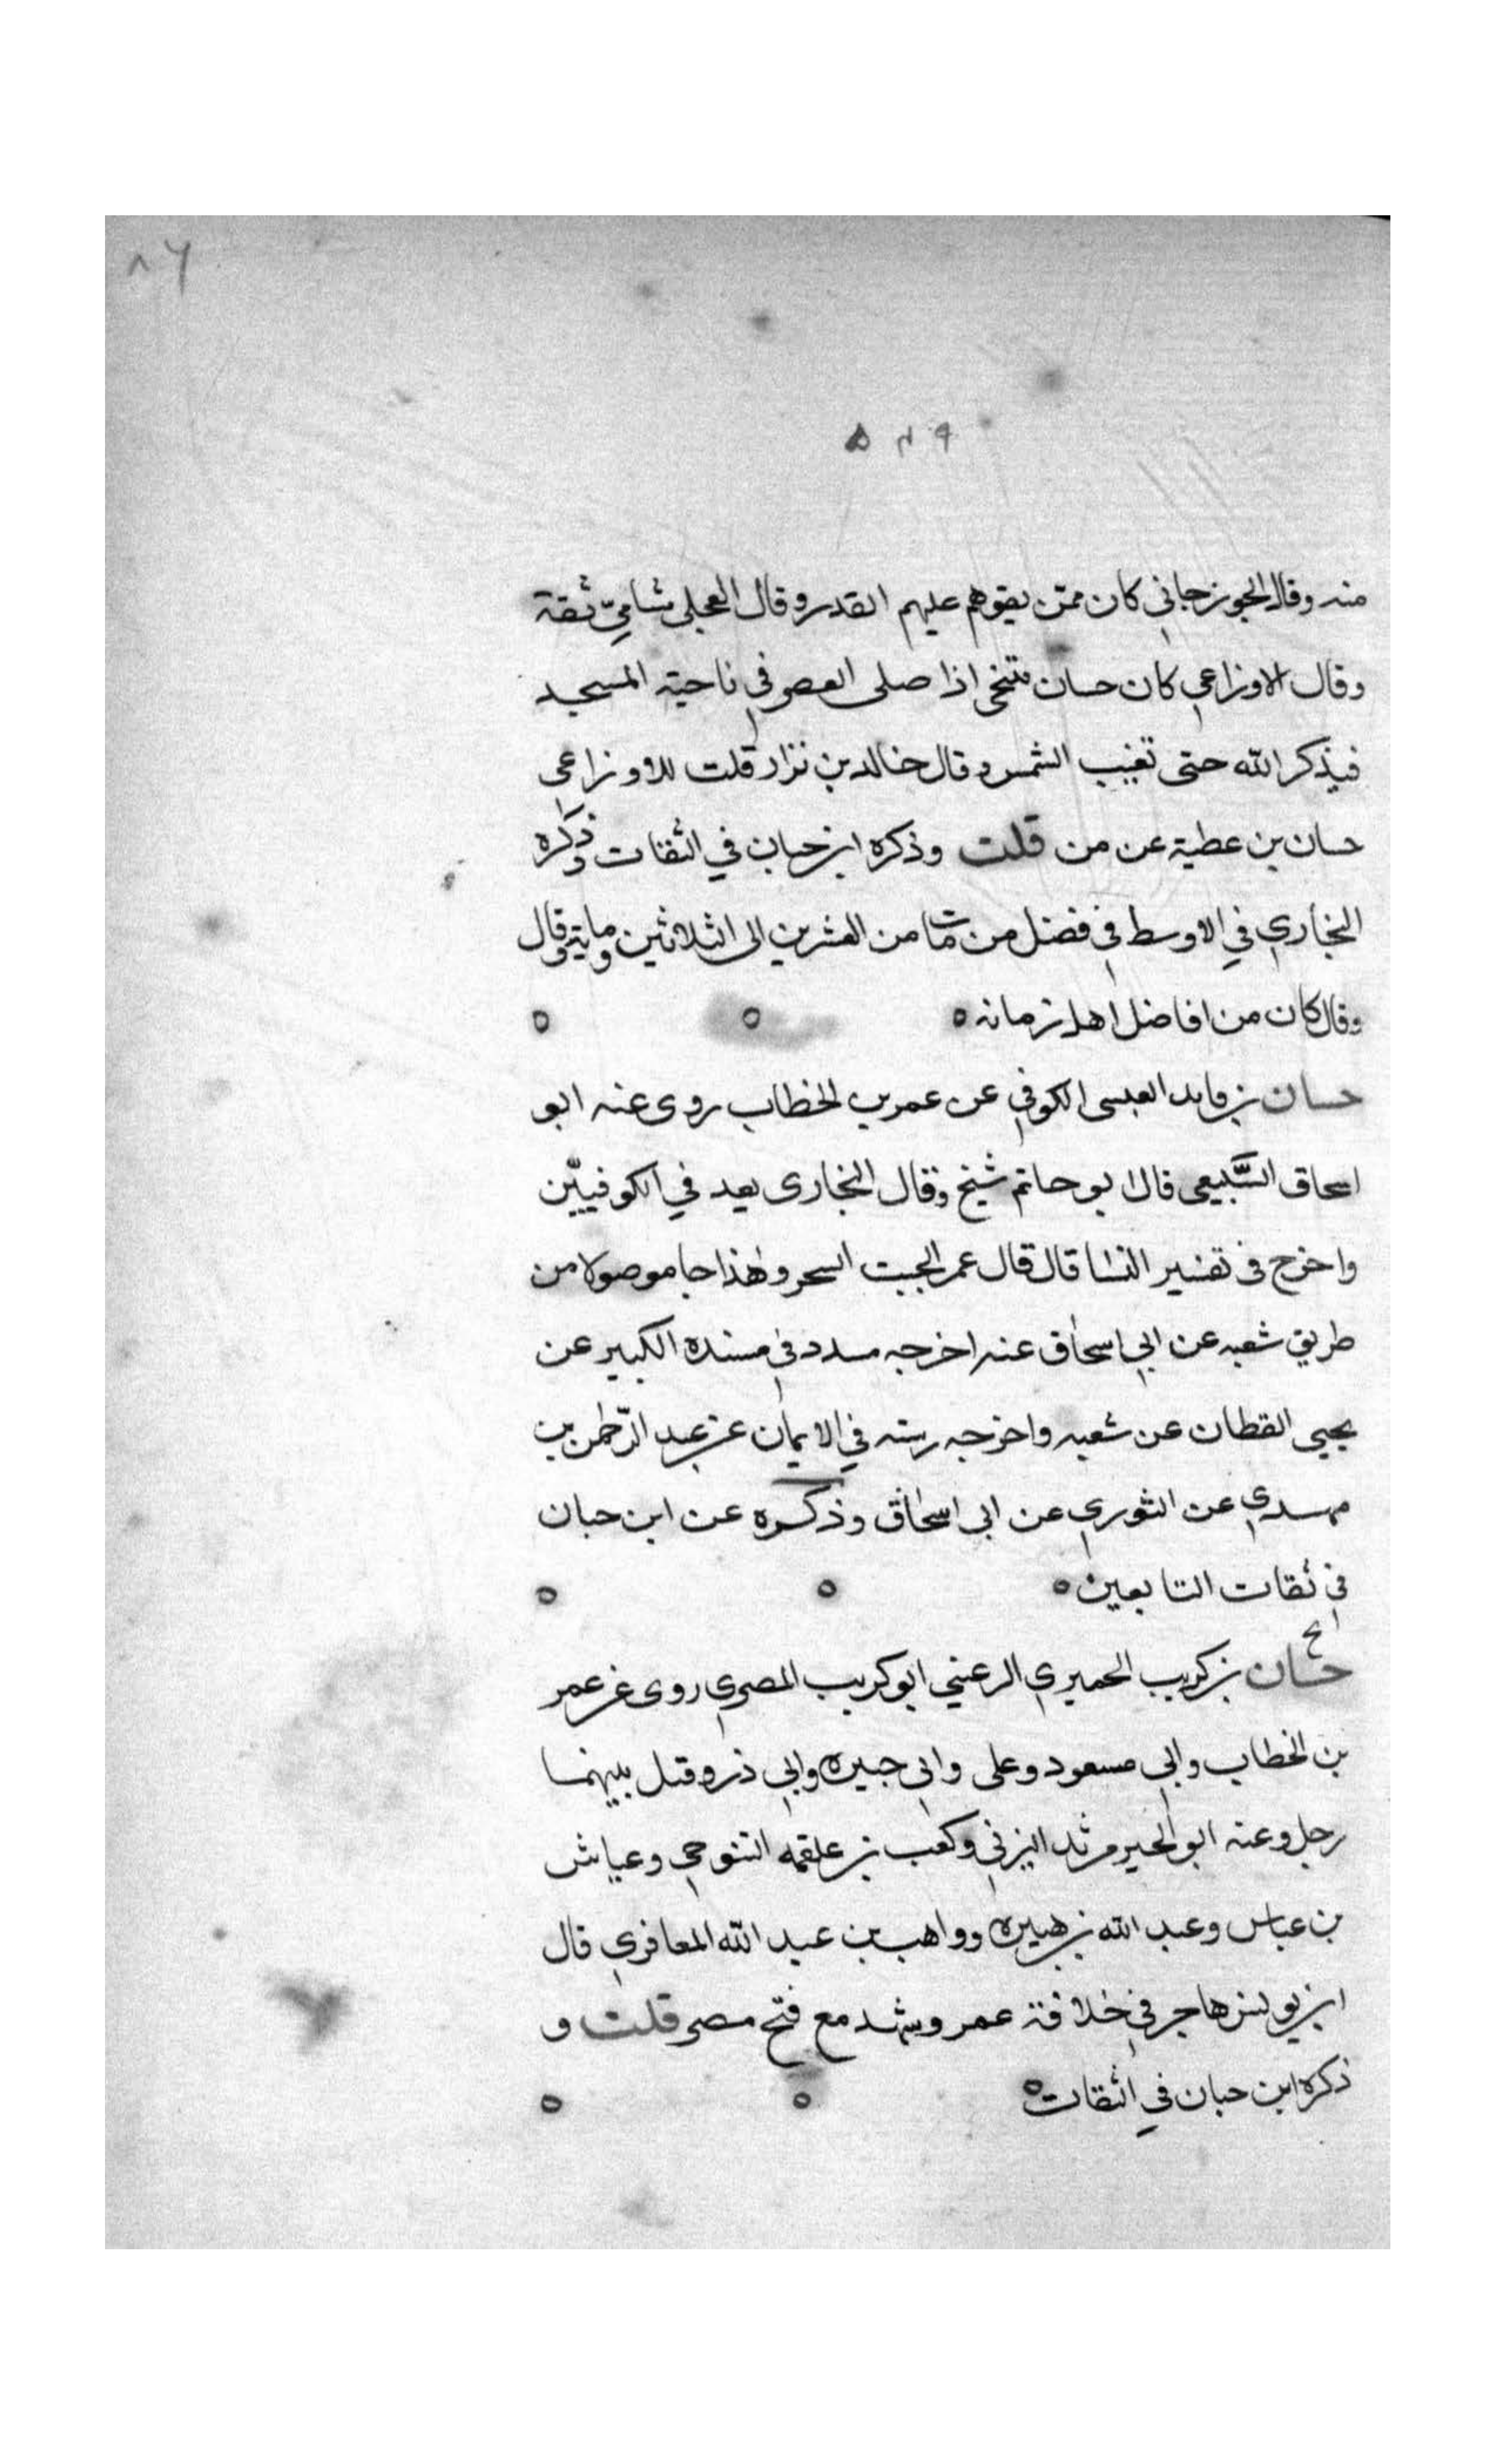 ٨٦
٥٨٩
منه وقال الجوزجاني كان ممن يقوهم عليهم القدر وقال العجلي شاميّ ثقة
وقال الاوزاعي كان حسان يتنحى اذا صلى العصر في ناحية المسجد
فيذكر الله حتى تغيب الشمس وقال خالد بن نزار قلت للاوزاعى
حسان بن عطية عن من قلت وذكره ابن حبان في الثقات وذكره
البخاري في الاوسط في فصل من مات من العشرين الى الثلاثين وماية وقال
وقال كان من افاضل اهل زمانه
حسان بن فايد العبسى الكوفي عن عمر بن الخطاب روى عنه ابو
اسحاق السَّبيعى قال ابو حاتم شيخ وقال البخارى يعد في الكوفييّن
واخرج فى تفسير النسا قال قال عمر الجبت السحر وهذا جا موصولا من
طريق شعبه عن ابي اسحاق عنه اخرجه مسدد في مسنده الكبير عن
يحيى القطان عن شعبه واخرجه رسته في الايمان عن عبد الرّحمن بن
مهدي عن الثوري عن ابى اسحاق وذكره عن ابن حبان
في ثقات التابعين
حسان بن كريب الحميري الرعيني ابو كريب المصري روى عن عمر
بن الخطاب وابي مسعود وعلى وابى جبيره وابي ذر وقيل بينهما
رجل وعنه ابو الخير مرثد اليزني وكعب بن علقمه التنوخي وعياش
بن عباس وعبد الله بن هبيره وواهب بن عبد الله المعافري قال
ابن يونس هاجر في خلافة عمر وشهد مع فتح مصر قلت و
ذكره ابن حبان في الثقات